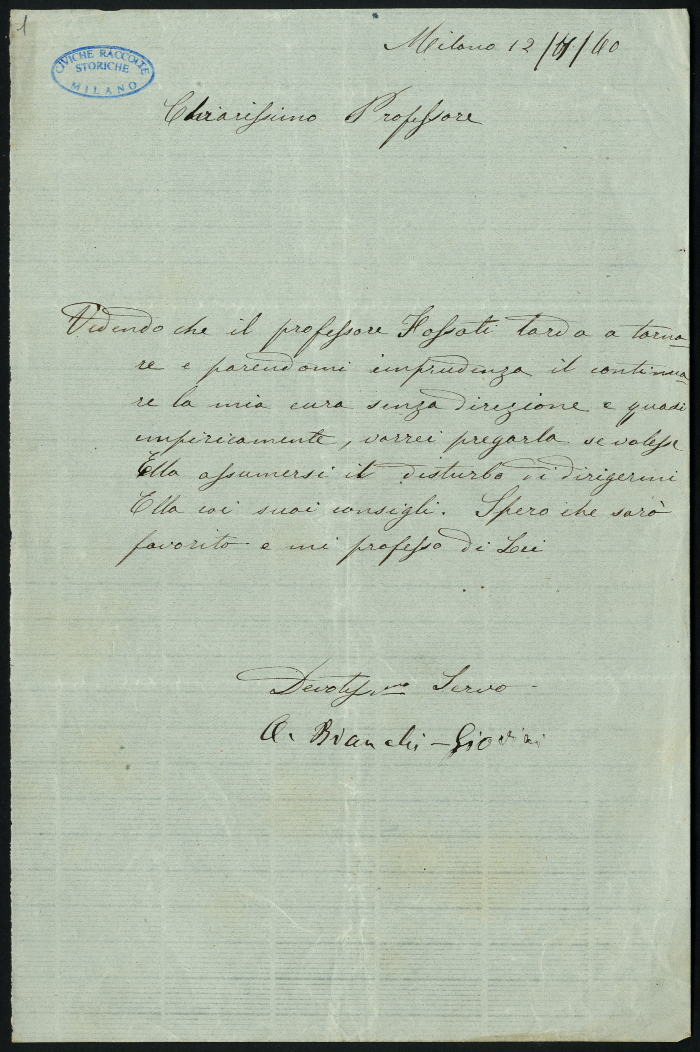 1
CIVICHE RACCOLTE
STORICHE
MILANO
Milano 12/ /60
Chiarissimo Professore
Vedendo che il professore Fossati tarda a torna-
re e parendomi imprudenza il continua-
re la mia cura senza direzione e quasi
empiricamente, vorrei pregarla se volesse
Ella assumersi il disturbo di dirigermi
Ella coi suoi consigli. Spero che sarò
favorito e mi professo di Lei
Devotissimo Servo
A. Bianchi-Giovini